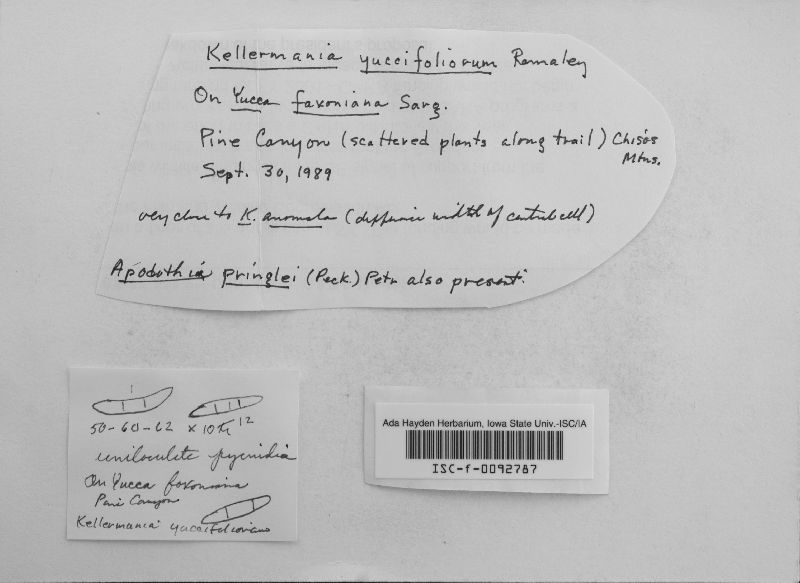 Kellermania yuccifoliorum Ramaley
On Yucca faxoniana Sarg.
Pine Canyon (scattered plants along trail) Chisos Mtns.
Sept. 30, 1989
very close to K. anomala (difference width of central cell)
Apodothia pringlei (Peck.) Petr also present.
50-60-62 x 10 12
uniloculate pycnidia
On Yucca faxoniana
Pine Canyon
Kellermania yuccifoliorum
Ada Hayden Herbarium, Iowa State Univ.-ISC/IA
ISC-f-0092787